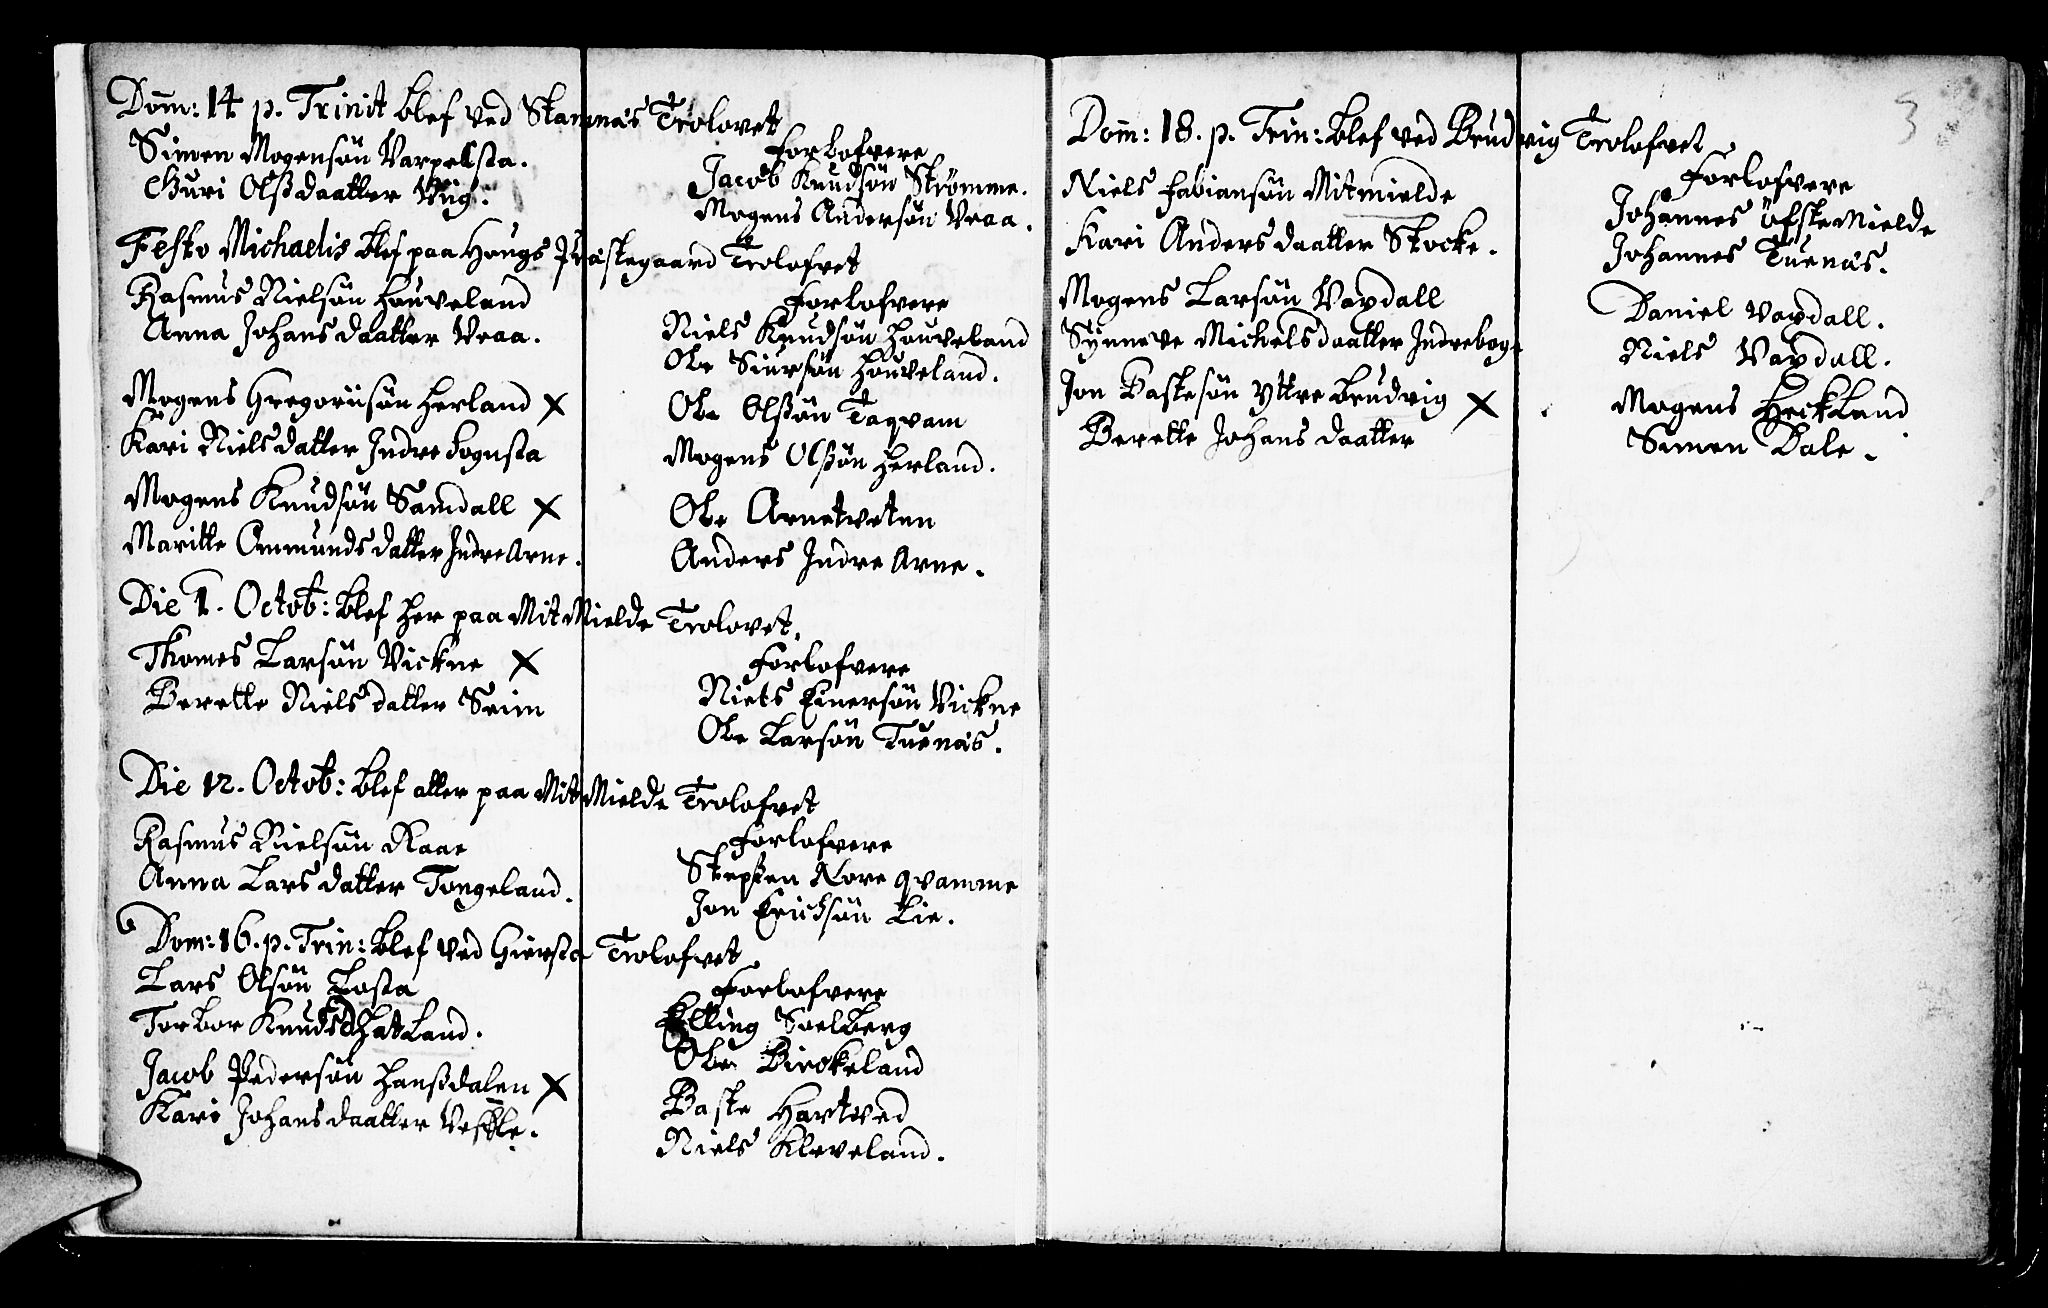 Dom: 14 p. Trinit blef ved Stamnæs Trolovet
Simen Mogensøn Varpelsta.
Guri Olßdaatter Viig.
Forlofvere
Jacob Knudsøn Strømme.
Mogens Andersøn Veaa.
Festo Michaelis blef paa Hougs Præstegaard Trolofvet
Rasmus Nielsøn Houveland
Anna Johansdaatter Veaa.
Forlofvere
Niels Knudsøn Houveland
Ole Siursøn Houveland.
Mogens Gregoriisøn Herland X
Kari Nielsdatter Indre Sognsta
Ole Olßøn Taqvam
Mogens Olßøn Herland.
Mogens Knudsøn Samdall X
Maritte Ommundsdatter Indre Arne.
Ole Arnetveten
Anders Indre Arne.
Die 1. Octob: blef her paa MitMielde Trolovet.
Thomes Larsøn Vickne X
Berette Nielsdatter Seim
Forlofvere
Niels Einersøn Vickne
Ole Larsøn Tuenæs.
Die 12. Octob: blef atter paa MitMielde Trolofvet
Rasmus Nielsøn Raae
Anna Larsdatter Tongeland.
Forlofvere
Stephen Nore qvamme
Jon Erichsøn Lie.
Dom: 16. p. Trin: blef ved Giersta Trolofvet
Lars Olsøn Tosta
Torbor Knudsd Hatland.
Forlofvere
Elling Soelberg
Ole Birckeland
Jacob Pedersøn Hanßdalen X
Kari Johansdaatter Veskle.
Baste Hartved
Niels Kleveland.
3
Dom: 18. p. Trin: blef ved Brudvig Trolofvet
Niels Fabiansøn Mitmielde
Kari Andersdaatter Stocke.
Forlofvere
Johannes ØfsteMielde
Johannes Tuenæs.
Mogens Larsøn Vaxdall
Synneve Michelsdaatter Indrebog
Daniel Vaxdall.
Niels Vaxdall.
Jon Bastesøn Yttre Brudvig X
Berette Johansdaatter
Mogens Heckland
Simen Dale.